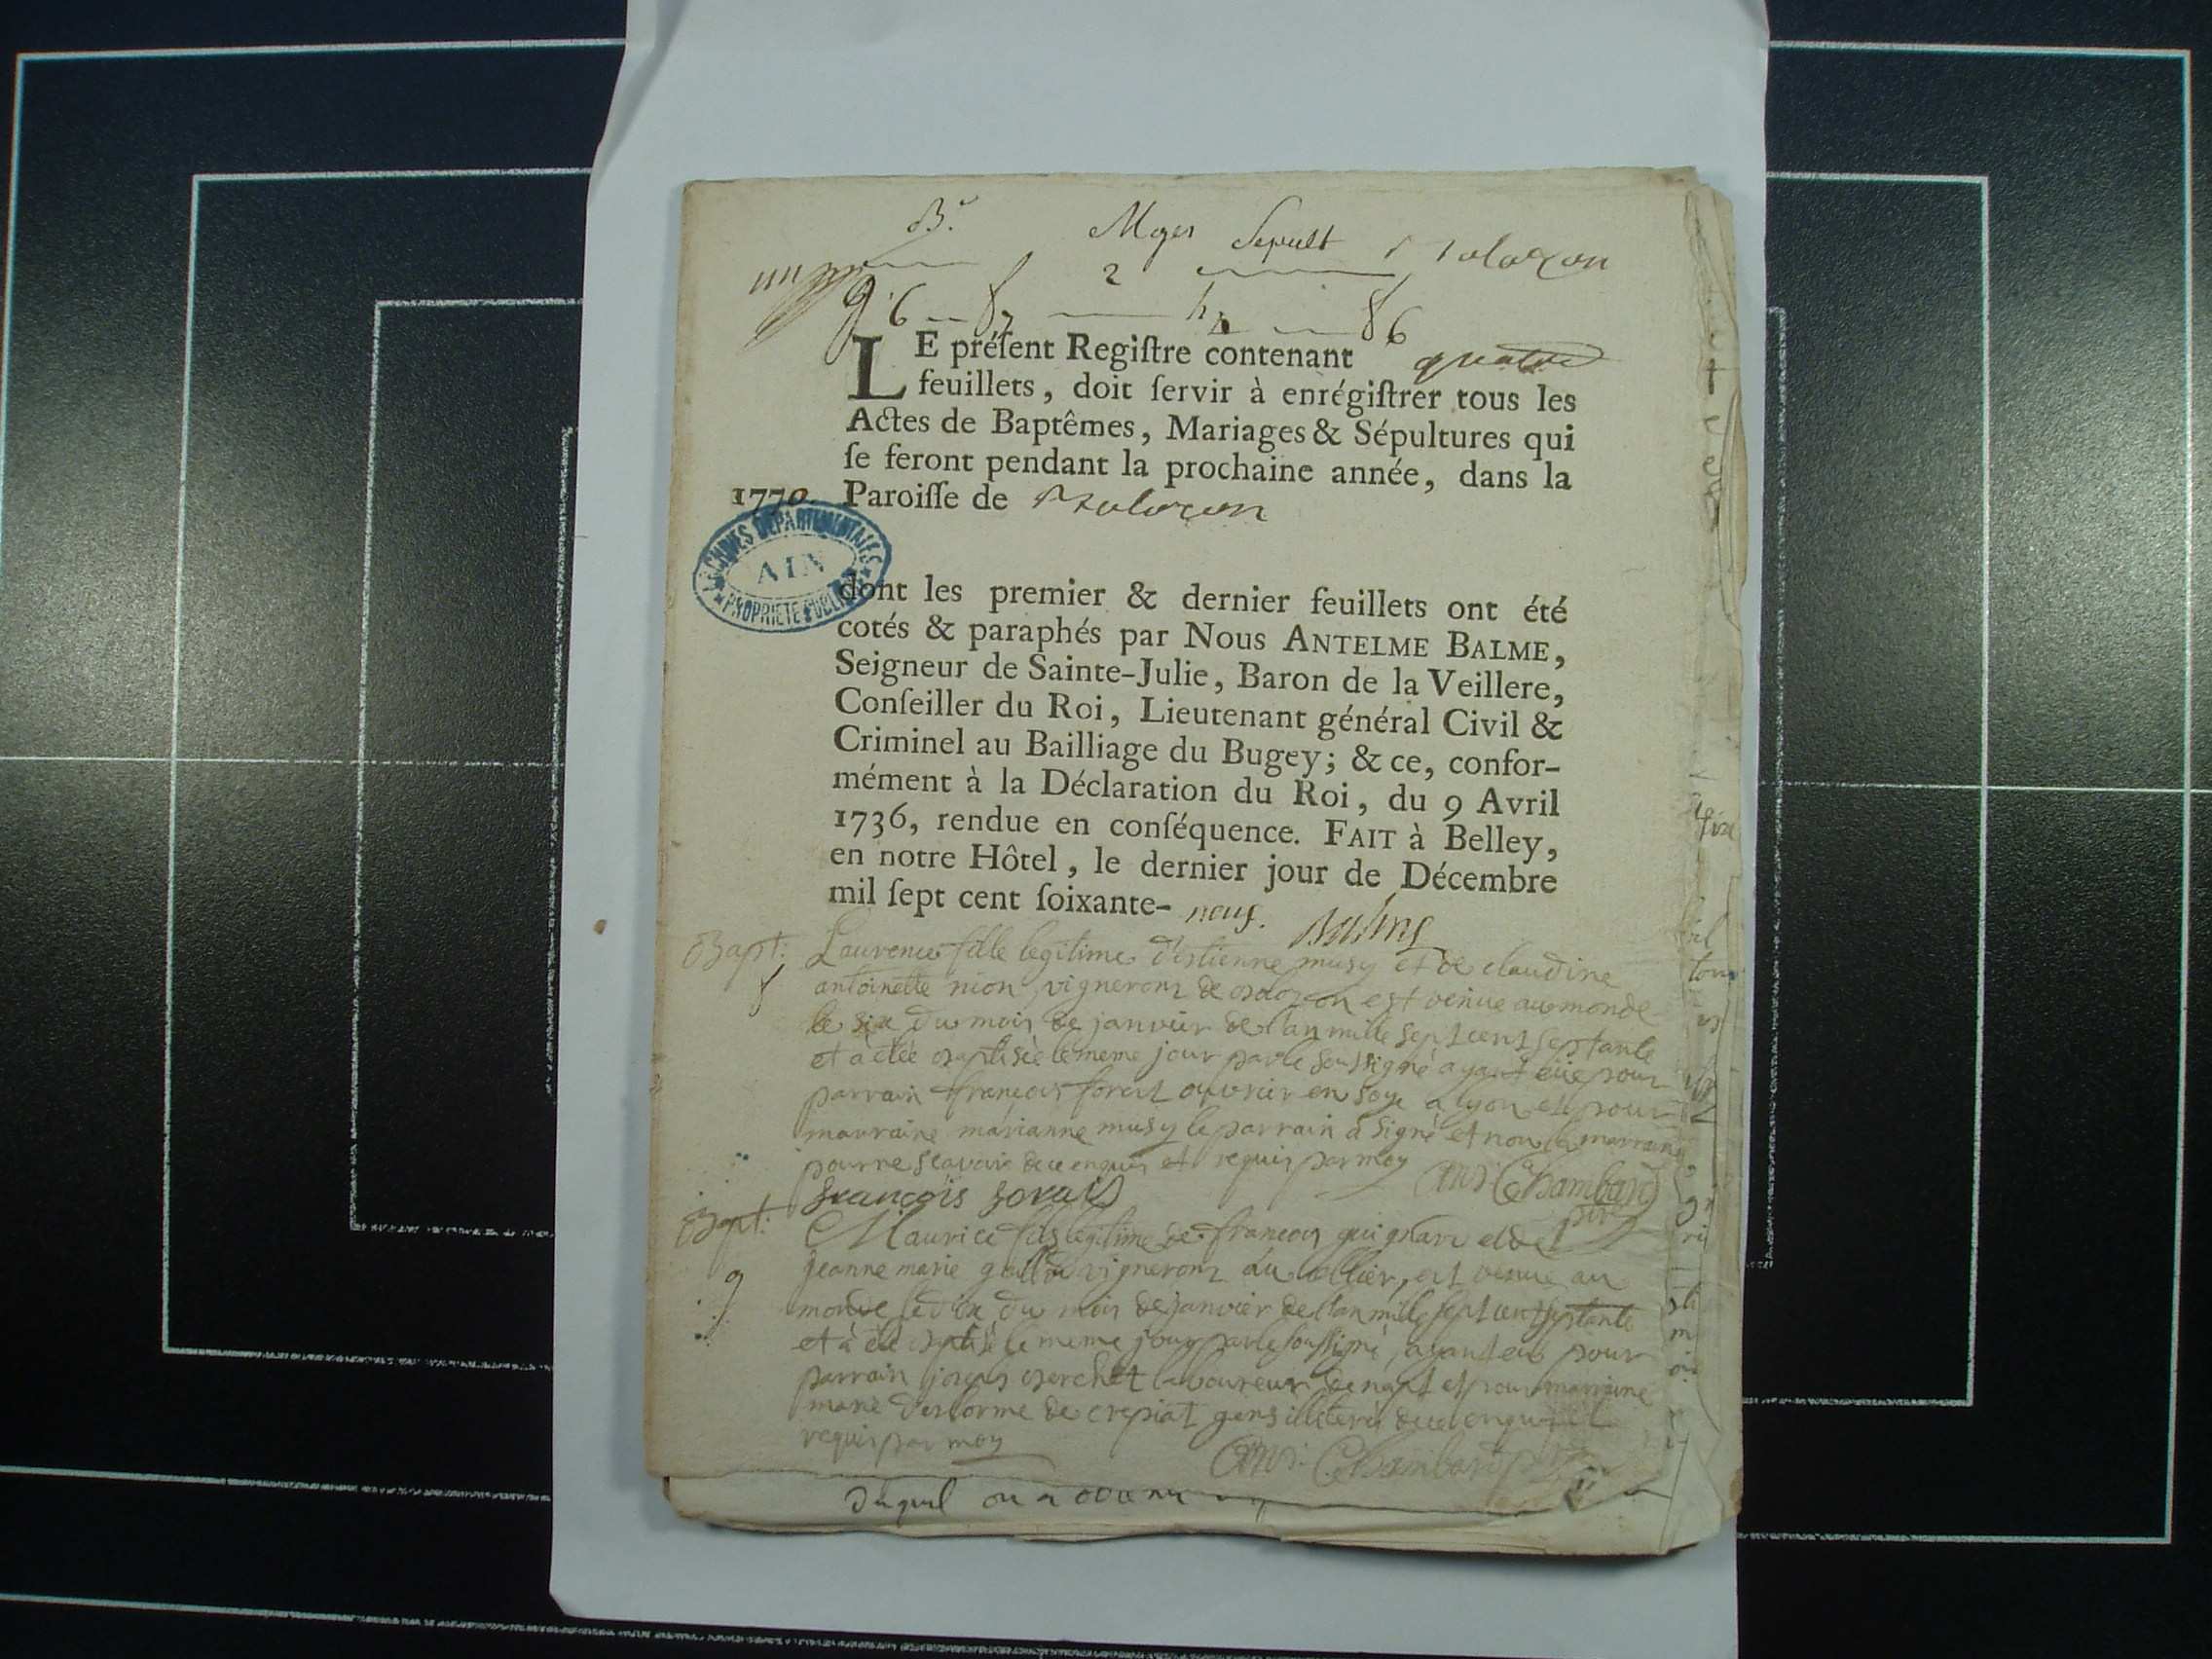 B.
Mges Sepult Bolozon
2
LE préſent Regiſtre contenant quatre
feuillets, doit ſervir à enrégiſtrer tous les
Actes de Baptêmes, Mariages & Sépultures qui
ſe feront pendant la prochaine année, dans la
1770. Paroiſſe de Bolozon
ARCHIVES DÉPARTEMENTALES
AIN
PROPRIÉTÉ PUBLIQUE
dont les premier & dernier feuillets ont été
cotés & paraphés par NOUS ANTELME BALME,
Seigneur de Sainte-Julie, Baron de la Veillere,
Conſeiller du Roi, Lieutenant général Civil &
Criminel au Bailliage du Bugey; & ce, confor-
mément à la Déclaration du Roi, du 9 Avril
1736, rendue en conſéquence. FAIT à Belley,
en notre Hôtel, le dernier jour de Décembre
mil ſept cent ſoixante- neuf. Balme
Bapt: Laurence fille legitime d'estienne musy et de claudine
antoinette nion, vignerons de bolozon est venue au monde
le six du mois de janvier de l'an mille sept cent septante
et a étée baptisée le meme jour par le soussigné ayant eüe pour
parrain françois forest ouvrier en soye a lyon et pour
marraine marianne musy le parrain a signé et non la marraine
pour ne scavoir de ce enquis et requis par moy Chambard
françois
Bapt: Maurice fils legitime de francois guignard et de
jeanne marie vignerons du cellier, est venue au
monde le dix du mois de janvier de l'an mille sept cent septante
et a été baptisé le meme jour par le soussigné, ayant eu pour
parrain berchet laboureur de napt et pour marraine
marie desborme de crepiat gens illeterés de ce enquis et
requis par moy Chambard